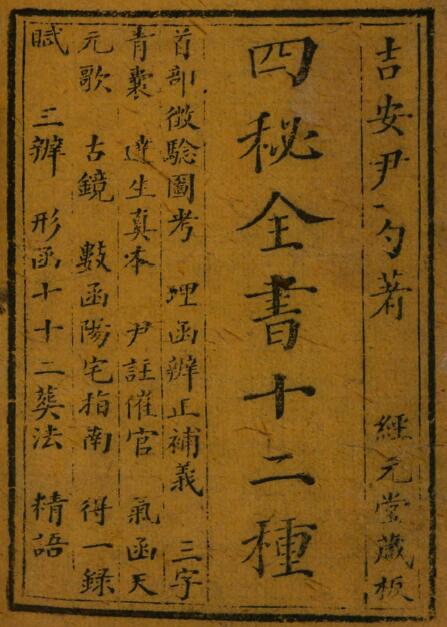 吉安尹一勺著　經元堂藏板
四秘全書十二種
首部徵驗圖考　理函辨正補義　三字
青囊　達生真本　尹註催官　氣函天
元歌　古鏡　數函陽宅指南　得一錄
賦　三辨　形函十十二葬法　精語